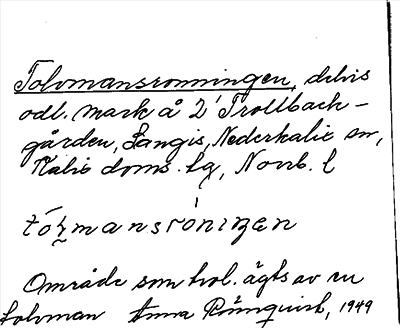 Tolvmansronningen, delvis
odl. mark å 2' Trollbäck-
gården, Sangis, Nederkalix sn,
Kalix doms. lg, Norrb. l
tólvmansróniŋen
Område som trol. ägts av en
tolvman Anna Rönnquist, 1949